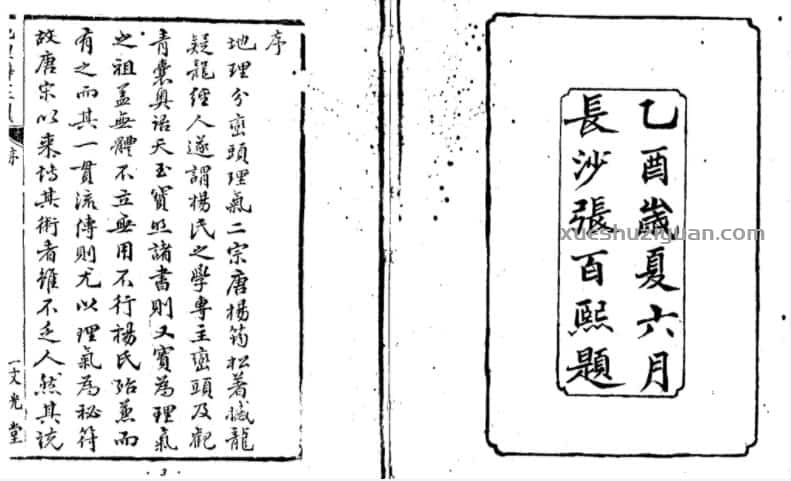 乙酉歲夏六月
長沙張百熙題
xueshuziyuan.com
序
地理分巒頭理氣二宗唐楊筠松著撼龍
疑龍經人遂謂楊氏之學專主巒頭及觀
青囊奧語天玉寶照諸書則又實為理氣
之祖蓋無體不立無用不行楊氏殆兼而
有之而其一貫流傳則尤以理氣為秘符
故唐宋以来諸其術者雖不乏人然其説
序
文光堂
3